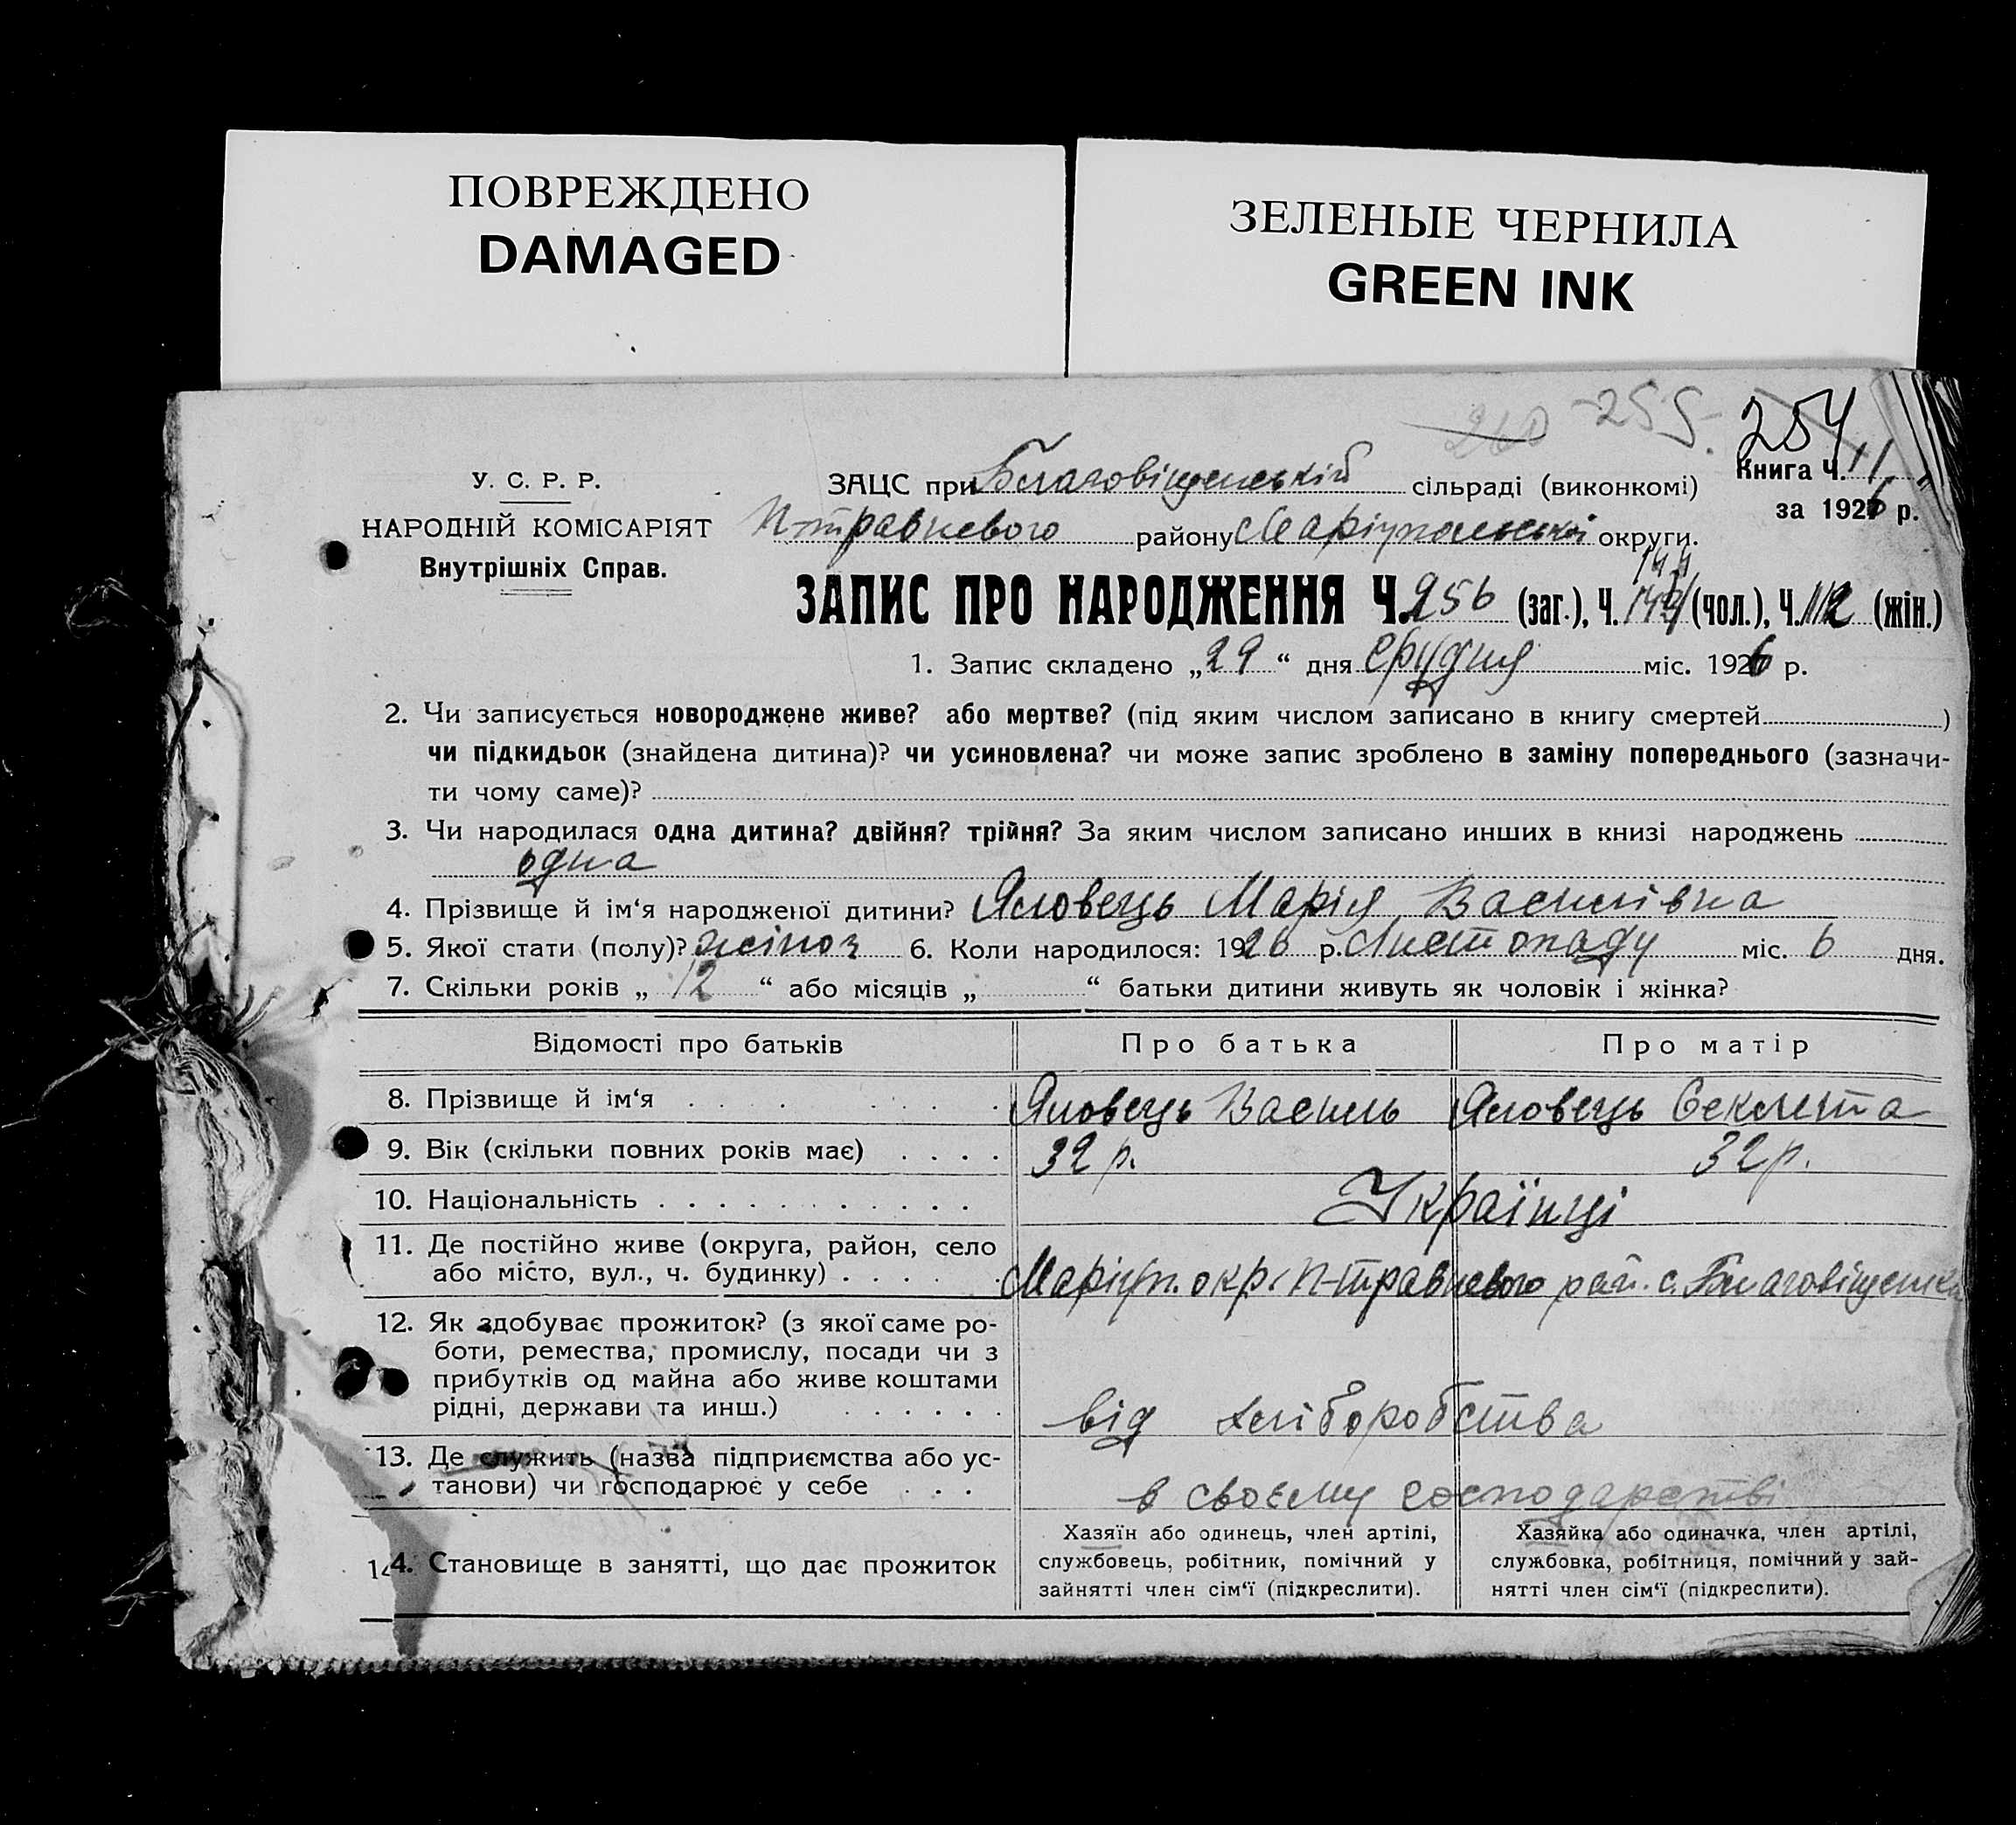 ПОВРЕЖДЕНО
DAMAGED
ЗЕЛЕНЫЕ ЧЕРНИЛА
GREEN INK
260 -255- 254
У. С. Р. Р.
НАРОДНІЙ КОМІСАРІЯТ
Внутрішніх Справ.
Книга Ч. 11
за 1926 р.
ЗАЦС при Благовіщенській сільраді (виконкомі)
П-травневого району Маріупольської округи.
144
ЗАПИС ПРО НАРОДЖЕННЯ Ч. 256 (заг.), Ч. (чол.), Ч. 112 (жін.)
1. Запис складено „29“ дня Грудня міс. 1926 р.
2. Чи записується новороджене живе? або мертве? (під яким числом записано в книгу смертей )
чи підкидьок (знайдена дитина)? чи усиновлена? чи може запис зроблено в заміну попереднього (зазначи-
ти чому саме)?
3. Чи народилася одна дитина? двійня? трійня? За яким числом записано инших в книзі народжень
одна
4. Прізвище й ім‘я народженої дитини? Яловець Марія Василівна
5. Якої стати (полу)? жіноч 6. Коли народилося: 1926 р. Листопаду міс. 6 дня.
7. Скільки років „12“ або місяців „ “ батьки дитини живуть як чоловік і жінка?
Відомості про батьків Про батька Про матір
8. Прізвище й ім‘я Яловець Василь Яловець Секлета
9. Вік (скільки повних років має) 32 р. 32 р.
10. Національність Українці
11. Де постійно живе (округа, район, село
або місто, вул., ч. будинку) Маріуп. окр. П-травневого рай. с. Благовіщенка
12. Як здобуває прожиток? (з якої саме ро-
боти, ремества, промислу, посади чи з
прибутків од майна або живе коштами
рідні, держави та инш.) від хліборобства
13. Де служить (назва підприємства або ус-
танови) чи господарює у себе в своєму господарстві
14. Становище в занятті, що дає прожиток
Хазяїн або одинець, член артілі,
службовець, робітник, помічний у
зайнятті член сім‘ї (підкреслити).
Хазяйка або одиначка, член артілі,
службовка, робітниця, помічний у зай-
нятті член сім‘ї (підкреслити).